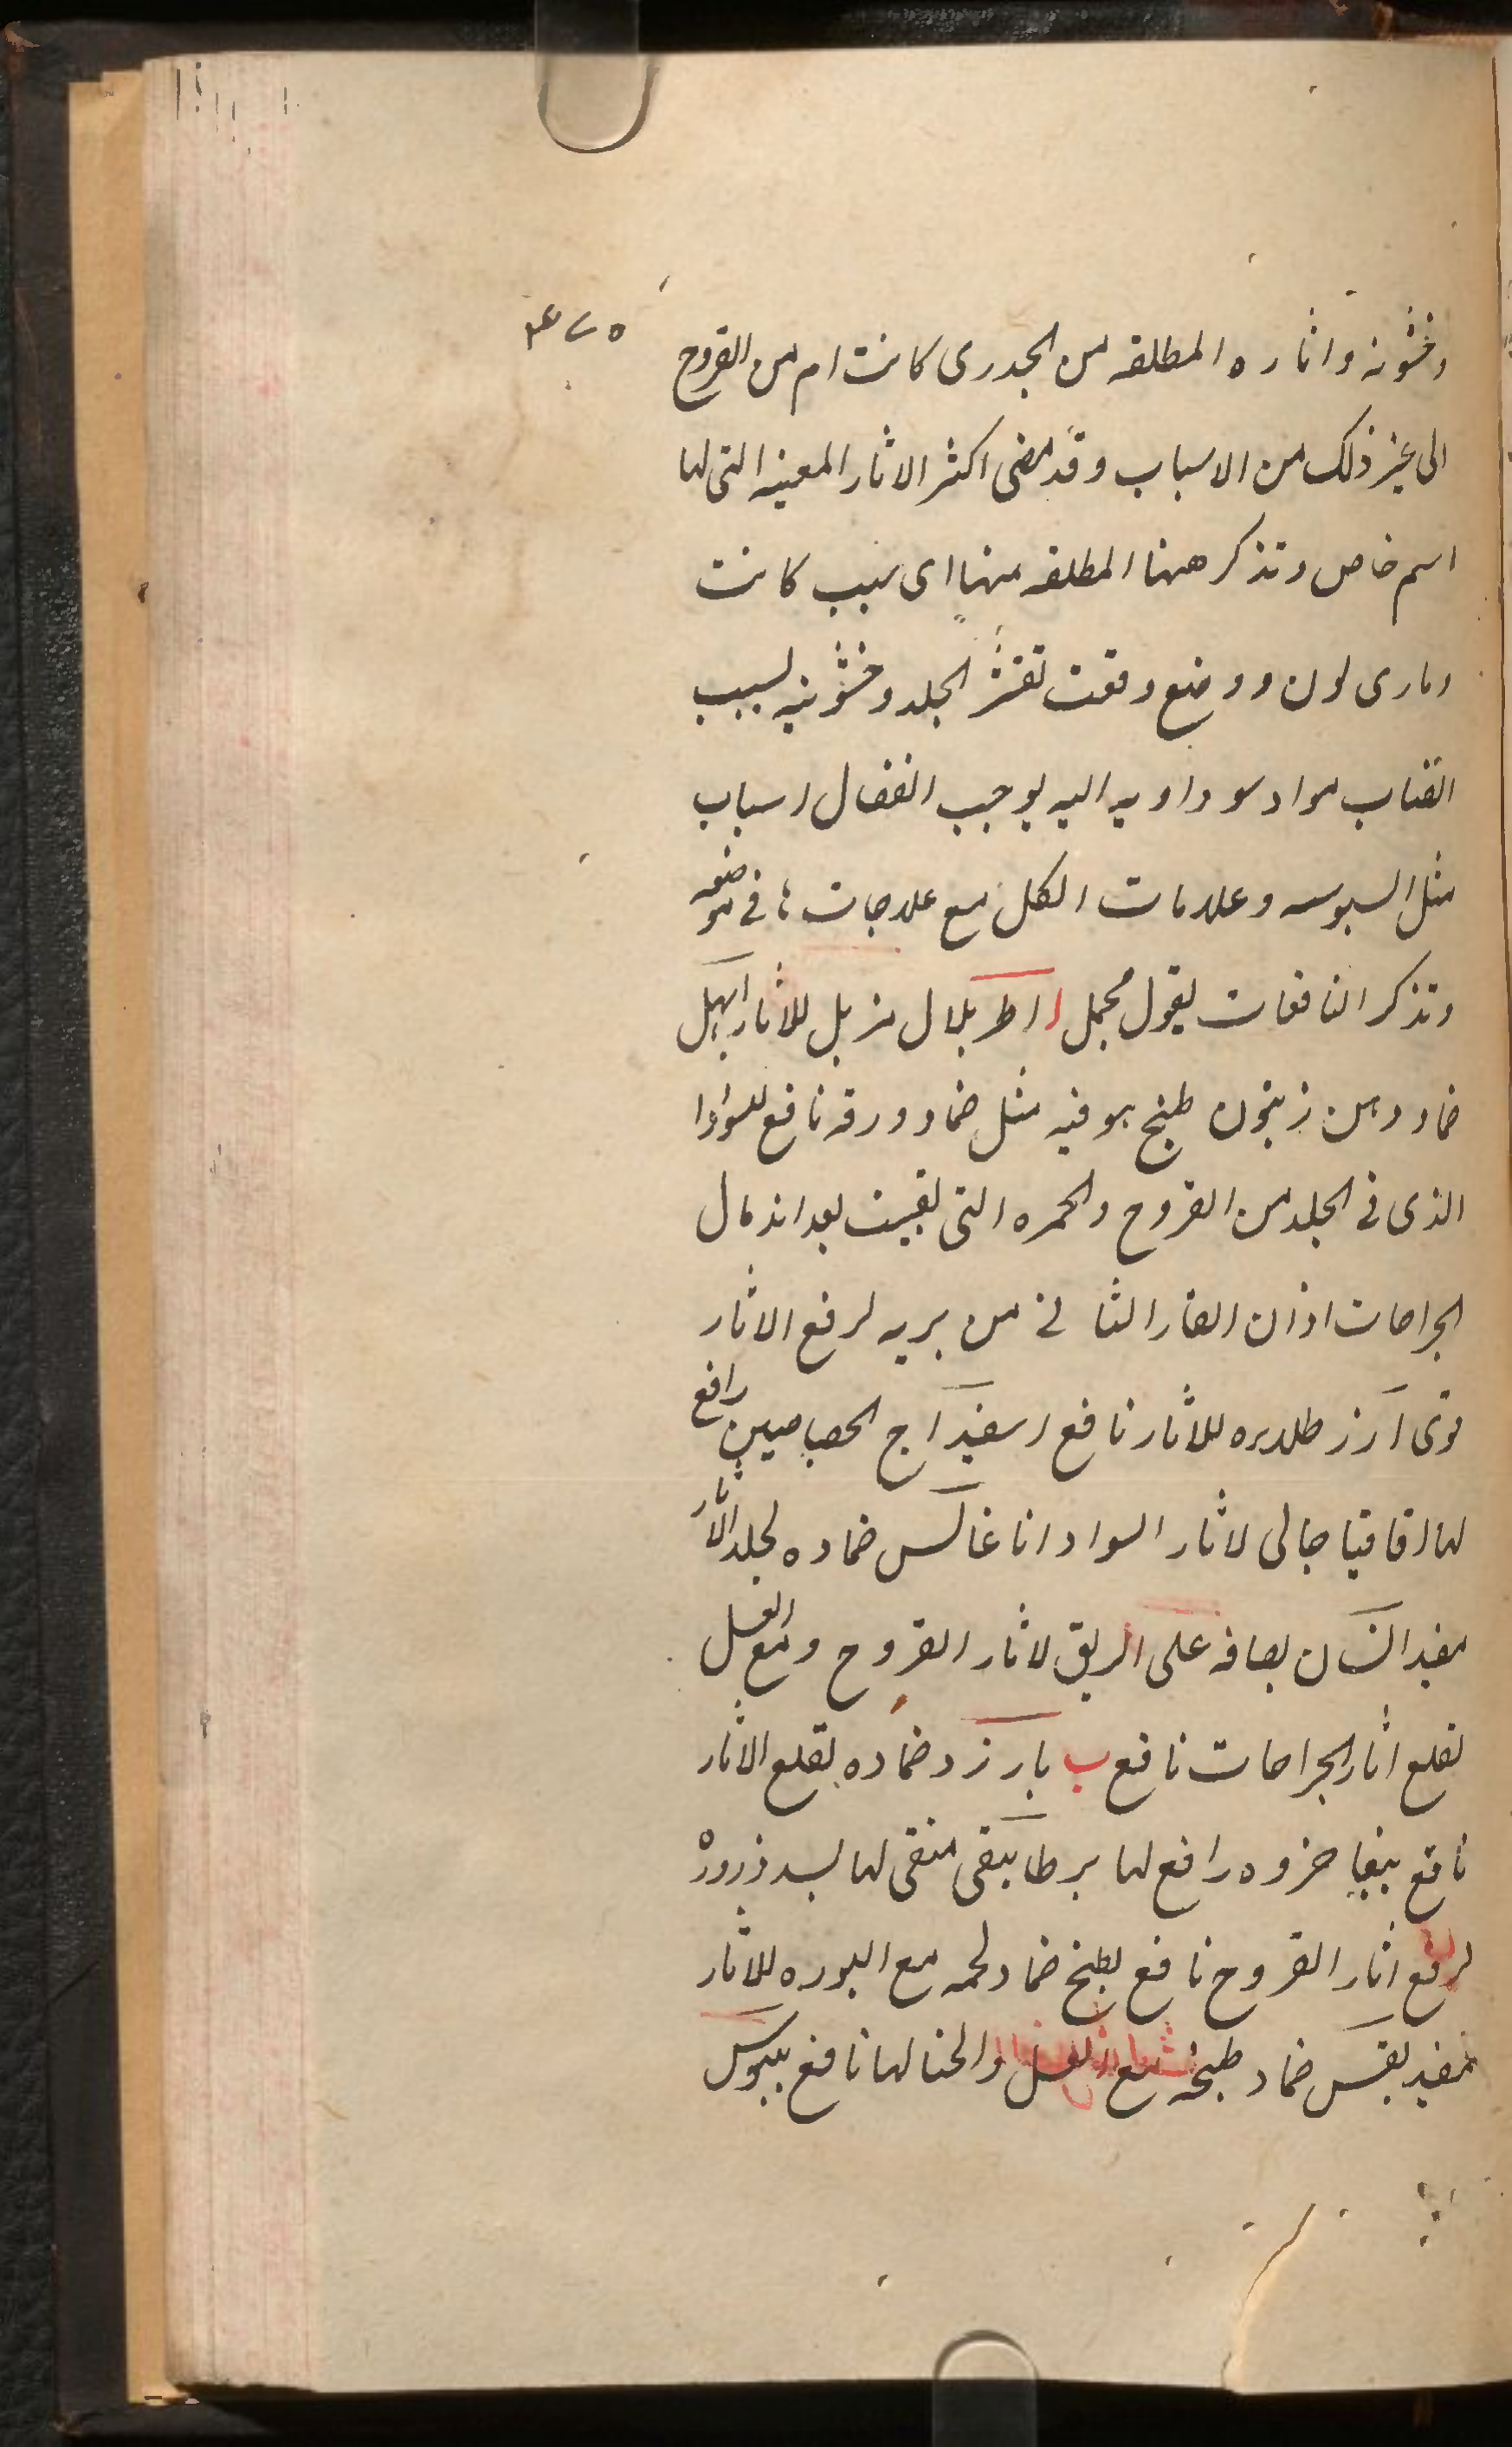 وخشونه واثاره المطلقه من الجدرى كانت ام من القروح
الى غير ذلك من الاسباب وقد مضى اكثر الاثار المعينه التى لها
اسم خاص وتذكر ههنا المطلقه منها اى سبب كانت
وبارى لون ووضع وقعت تقشر الجلد وخشونيه لسبب
انصباب مواد سوداويه اليه يوجب انفعال اسباب
مثل السبوسه وعلامات الكل مع علاجات فى موضعه
وتذكر النافعات بقول مجمل ا اطريلال مزيل للاثار ابهل
ضماد دهن زيتون طبخ هو فيه مثل ضماد ورقه نافع للسواد
الذى فى الجلد من القروح والحمره التى بقيت بعد اندمال
الجراحات اذان الفار الثانى من بريه لرفع الاثار
قوى ارز للاثار نافع اسفيداج الجصاصين رافع
لها اقاقيا جالى لاثار السواد اناغالس ضماده لجلد الاثار
مفيد انسان بصاقه على الريق لاثار القروح ومع العسل
لقلع اثار الجراحات نافع ب بارزد ضماده لقلع الاثار
نافع ببغا خروه رافع لها برطانيقى منقى لها بسد ذروره
لرفع اثار القروح نافع بطيخ ضماد لحمه مع البوره للاثار
مفيد بقس ضماد طبخه مع العسل والحنا لها نافع بلبوس